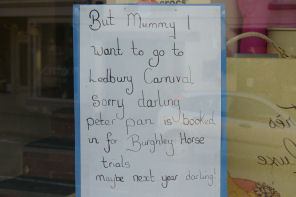 crocs
But Mummy I
want to go to
Ledbury Carnival
Sorry darling
peter pan is booked
in for Burghley Horse
trials
maybe next year darling!